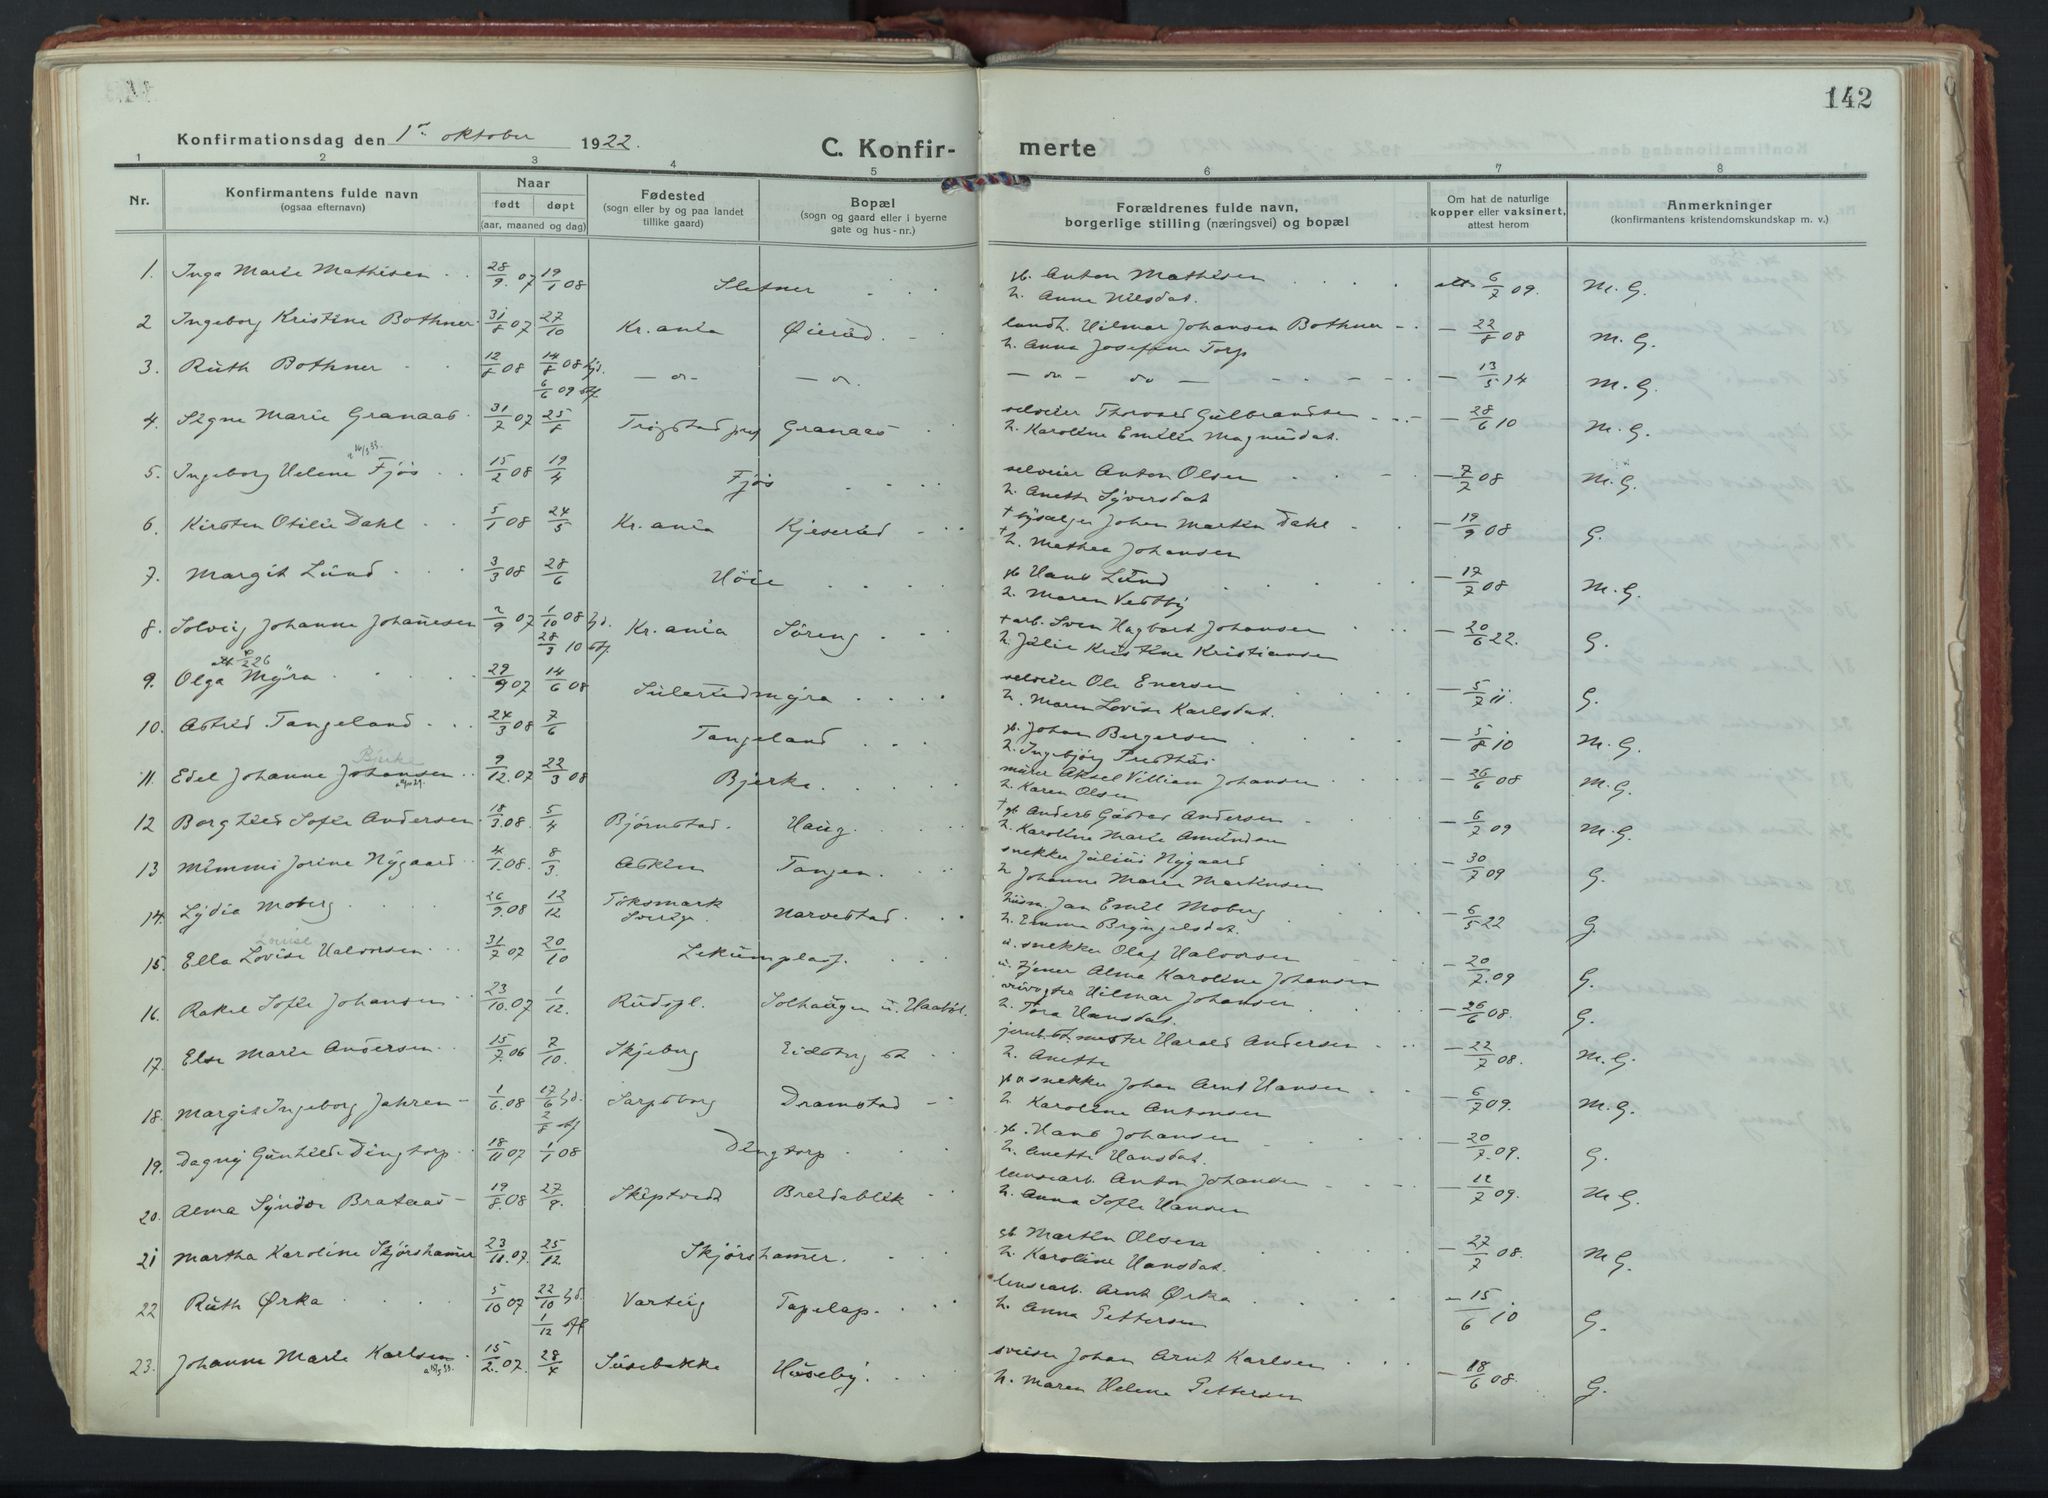 142
Konfirmationsdag den 1ste oktober 1922.
C. Konfir- merte
1 2 3 4 5 6 7 8
Nr.
Konfirmantens fulde navn
(ogsaa efternavn)
Naar
født døpt
(aar, maaned og dag)
Fødested
(sogn eller by og paa landet
tillike gaard)
Bopæl
(sogn og gaard eller i byerne
gate og hus-nr.)
Forældrenes fulde navn,
borgerlige stilling (næringsvei) og bopæl
Om hat de naturlige
kopper eller vaksinert,
attest herom
Anmerkninger
(konfirmantens kristendomskundskap m. v.)
1. Inga Marie Mathisen 28/9 07 19/1 08 Sletner gb. Anton Mathisen att. 6/7 09. M. G.
h. Anna Nilsdat.
2 Ingeborg Kristine Bothner 31/8 07 27/10 Kr.ania Øierud landh. Hilmar Johansen Bothner — 22/8 08 M. G.
h. Anna Josefine Torp
3. Ruth Bothner 12/8 08 14/8 08 hjd. — do — — do. — do — do — — 13/5 14 M. G.
6/6 09 stf.
4. Signe Marie Granaas 31/7 07 25/8 Trøgstad prg Granaas selveier Thorvald Gulbrandsen — 28/6 10 M. G.
h. Karoline Emilie Magnusdat.
5. Ingeborg Helene Fjøs 15/2 08 19/4 Fjøs selveier Anton Olsen — 7/7 08 M. G.
h. Anette Syversdat
6. Kirsten Otilie Dahl 5/1 08 24/5 Kr.ania Kjeserud † Johan Martin Dahl — 19/9 08 G.
† h. Mathea Johansen
7. Margit Lund 3/3 08 28/6 Høie gb Hans Lund — 17/7 08 M. G.
h. Maren Vestby
8. Solveig Johanne Johannesen 2/9 07 1/10 08 hjd. Kr.ania Søreng † arb. Sven Hagbart Johansen — 20/6 22. G.
28/3 10 stf. h. Julie Kristine Kristiansen
9. Olga Myra 29/9 07 14/6 08 Sulerudmyra selveier Ole Enersen — 5/7 11. G.
h. Maren Lovise Karlsdat.
10. Astrid Tangeland 24/3 08 7/6 Tangeland gb. Johan Bergersen — 5/8 10 M. G.
h. Ingebjørg Presthus
Bjerke
11. Edel Johanne Johansen 9/12. 07 22/3 08 Bjerke. murer Aksel Villiam Johansen — 26/6 08 M. G.
h. Karen Olsen
12 Borghild Sofie Andersen 18/3. 08. 5/4 Bjørnstad. Haug. † gb Anders Gustav Andersen — 6/7 09 M. G.
h. Karoline Marie Amundsen
13 Mimmi Jorine Nygaard 4/1. 08. 8/3. Askim Tangen. snekker Julius Nygaard — 30/7 09 G.
h Johanne Maren Martinsen
14. Lydia Moberg 26/9. 08 12/12 Töksmark Narvestad husm. Jan Emil Moberg — 6/5 22 G.
Sverige. h. Emma Bryngelsdat.
Louise
15. Ella Lovise Halvorsen 31/7 07 20/10 Lekumplads. u. snekker Olaf Halvorsen — 20/7. 09 G.
u. tjener Alma Karoline Johansen
16. Rakel Sofie Johansen 23/10. 07 1/12. Rudspl. Solhaugen u. Haabøl. veivogter Hilmar Johansen — 26/6 08. G.
h. Tora Hansdat.
17. Else Marie Andersen 15/7. 06 7/10. Skjeberg Eidsberg st jernb.st.mester Harald Andersen — 22/7 08. M. G.
h. Anette
18. Margit Ingeborg Jahren 1/6. 08 17/6 hjd. Sarpsborg Dramstad gb o snekker Johan Arnt Hansen — 6/7 09. M. G.
2/8 stf h Karoline Antonsen
19. Dagny Gunhilde Dingtorp 18/11 07 1/1 08 Dingtorp gb. Hans Johansen — 20/7. 09. G.
h. Anette Hansdat.
20. Alma Syndøe Brataas 19/8. 08 27/9. Skiptvedt Breidablik lensearb. Anton Johansen — 12/7 09. M G.
h. Anna Sofie Hansen
21 Martha Karoline Skjørshamer 23/11. 07. 25/12. Skjørshamer. gb Martin Olsen — 27/7 08. M G.
h. Karoline Hansdat.
22 Ruth Ørka 5/10 07 22/10 hjd. Varteig Tapelap. lensearb. Arnt Ørka — 15/6 10 G.
1/12 stf h. Anna Pettersen
23. Johanne Marie Karlsen 15/2. 07. 28/4 Susebakke Huseby. sveiser Johan Arnt Karlsen — 18/6 08. G.
h. Maren Helene Pettersen